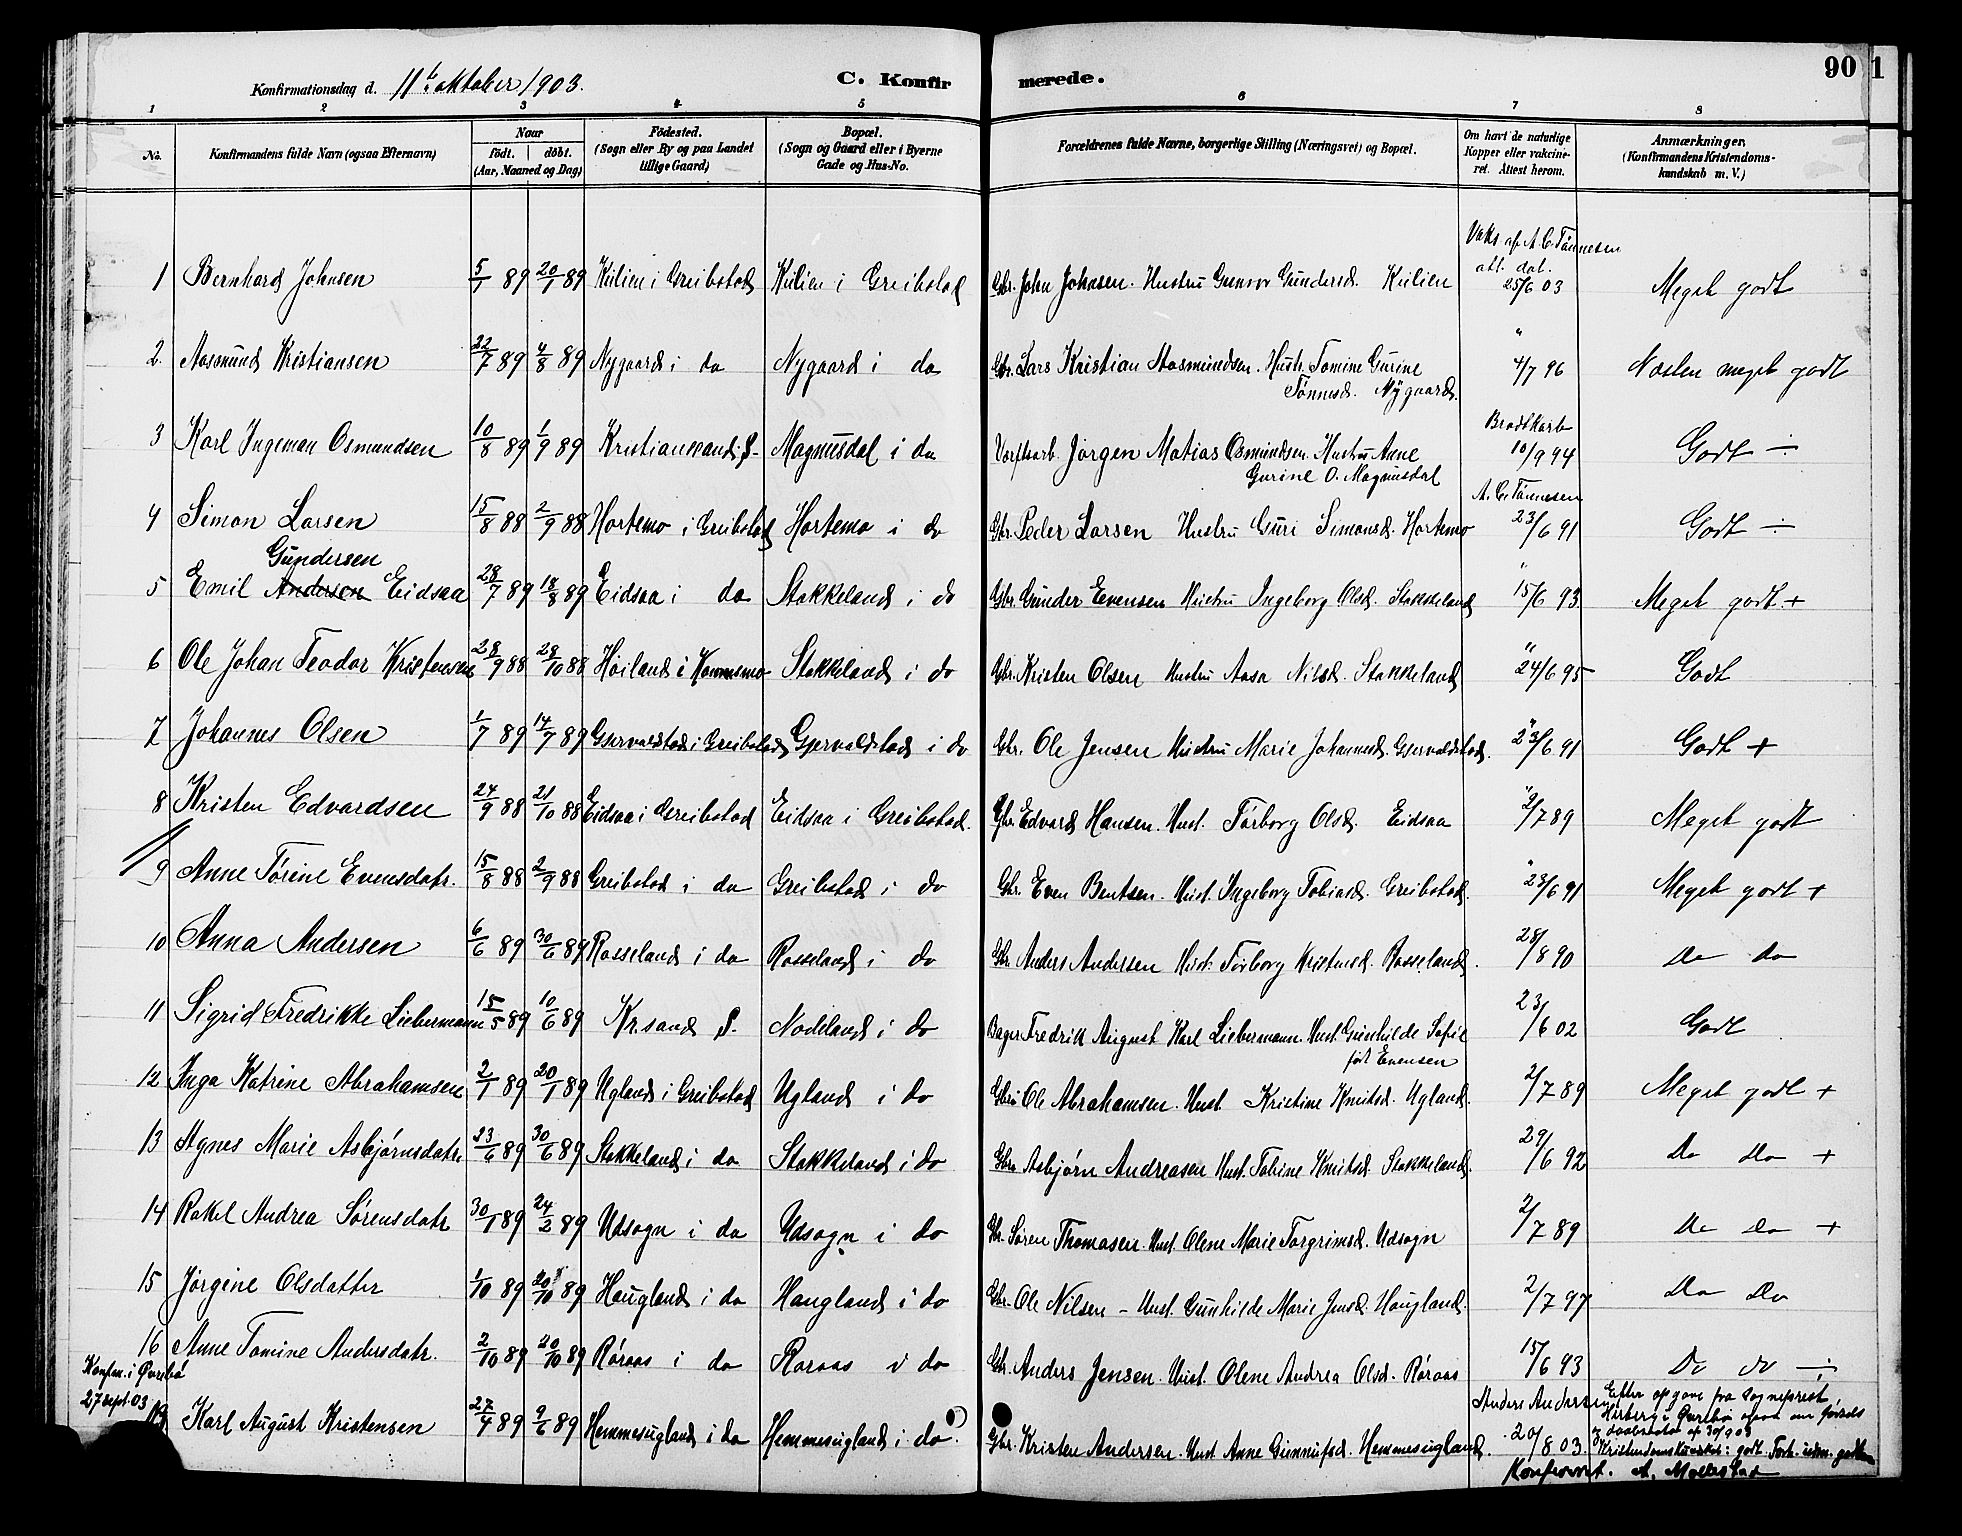 Konfirmationsdag d. 11te oktober 1903.
C. Konfirmerede.
90 1
1 2 3 4 5 6 7 8
No. Konfirmandens fulde Navn (ogsaa Efternavn) Naar födt. döbt. (Aar, Maaned og Dag) Födested. (Sogn eller By og paa Landet tillige Gaard) Bopæl. (Sogn og Gaard eller i Byerne Gade og Hus-No.) Forældrenes fulde Navne, borgerlige Stilling (Næringsvei) og Bopæl. Om havt de naturlige Kopper eller vakcineret. Attest herom. Anmærkninger, (Konfirmandens Kristendomskundskab m. V.)
Vaks. af A C Tønnesen
att. dat.
1 Bernhard Johnsen 5/1 89 20/1 89 Kilien i Greibstad Kilien i Greibstad Gbr. John Johnsen. Hustru Gunvor Gundersd. Kilien 25/6 03 Meget godt
2. Aasmund Kristiansen 22/7 89 4/8 89 Nygaard i do Nygaard i do Gbr. Lars Kristian Aasmundsen. Hustr. Tomine Gurine " 4/7 96 Næsten meget godt
Tønnesd. Nygaard.
Bradtkarb
3 Karl Ingeman Osmundsen 10/8 89 1/9 89 Kristianssand S. Magnusdal i do Værftsarb. Jørgen Matias Osmundsen. Hustru Anne 10/9 94 Godt ÷
Gurine O. Magnusdal
A. C. Tønnesen
4 Simon Larsen 15/8 88 2/9 88 Hortemo i Greibstad Hortemo i do Gbr. Peder Larsen Hustru Guri Simonsd. Hortemo 23/6 91 Godt ÷
Gundersen
5 Emil Andersen Eidsaa 28/7 89 18/8 89 Eidsaa i do Stokkeland i do Gbr. Gunder Evensen Hustru Ingeborg Olsd. Stokkeland " 15/6 93 Meget godt +
6 Ole Johan Teodor Kristensen 28/9 88 28/10 88 Høiland i Stokkeland i do Gbr. Kristen Olsen Hustru Aasa Nilsd. Stokkeland " 24/6 95 Godt
7 Johannes Olsen 1/7 89 14/7 89 Gjervoldstad i Greibstad Gjervoldstad i do Gbr. Ole Jensen Hustru Marie Johannesd. Gjervoldstad. " 23/6 91 Godt +
8 Kristen Edvardsen 24/9 88 21/10 88 Eidsaa i Greibstad Eidsaa i Greibstad. Gbr. Edvard Hansen. Hust. Torborg Olsd. Eidsaa " 2/7 89 Meget godt
9 Anne Tørine Evensdatr. 15/8 88 2/9 88 Greibstad i do Greibstad i do Gbr. Even Bentsen. Hust. Ingeborg Tobiasd. Greibstad. " 23/6 91 Meget godt +
10 Anna Andersen 6/6 89 30/6 89 Rosseland i do Rosseland i do Gbr. Anders Andersen Hust. Torborg Kristensd. Rosseland. 28/8 90 Do do
11 Sigrid Fredrikke Liebermann 15/5 89 10/6 89 Kr.sand S. Nodeland i do Bager Fredrik August Karl Liebermann. Hust. Gunhilde Sofie 23/6 02 Godt
født Evensen
12 Inga Katrine Abrahamsen 2/1 89 20/1 89 Ugland i Greibstad Ugland i do Gbr. Ole Abrahamsen. Hust. Kristine Knutsd. Ugland. 2/7 89 Meget godt +
13 Agnes Marie Asbjørnsdatr. 23/6 89 30/6 89 Stokkeland i do Stokkeland i do Gbr. Asbjørn Andreasen Hust. Tobine Knutsd. Stokkeland. 29/6 92 Do do +
14 Rakel Andrea Sørensdatr 30/1 89 24/2 89 Udsogn i do Udsogn i do Gbr. Søren Thomasen. Hust. Olene Marie Torgrimsd. Udsogn 2/7 89 Do do +
15 Jørgine Olsdatter 1/10 89 20/10 89 Haugland i do Haugland i do Gbr. Ole Nilsen - Hust. Gunhilde Marie Jensd. Haugland. 2/7 97 Do Do
16 Anne Tomine Andersdatr. 2/10 89 20/10 89 Røraas i do Røraas i do Gbr. Anders Jensen. Hust. Olene Andrea Olsd. Røraas 15/6 93 Do do ÷
Konfm. i Øvrebø
27 sept. 03
Anders Andersen
Karl August Kristensen 27/4 89 9/6 89 Hemmesugland i do Hemmesugland i do. Gbr. Kristen Andersen. Hust. Anne Gunnufsd. Hemmesugland. 20/8 03.
Efter opgave fra sogneprest
i Øvrebø
af 30/9 03
Kristendomskundsk: godt.
Konfirmert. A. Mollestad